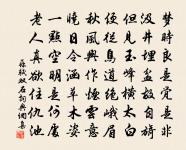 夢時良是覺時非
汲井埋盆故自癡
但見玉峰橫太白
便從鳥道絕峨眉
秋風與作煙雲意
曉日令涵草木姿
一點空明是何處
老人真欲住仇池
蘇軾雙石詞典網集